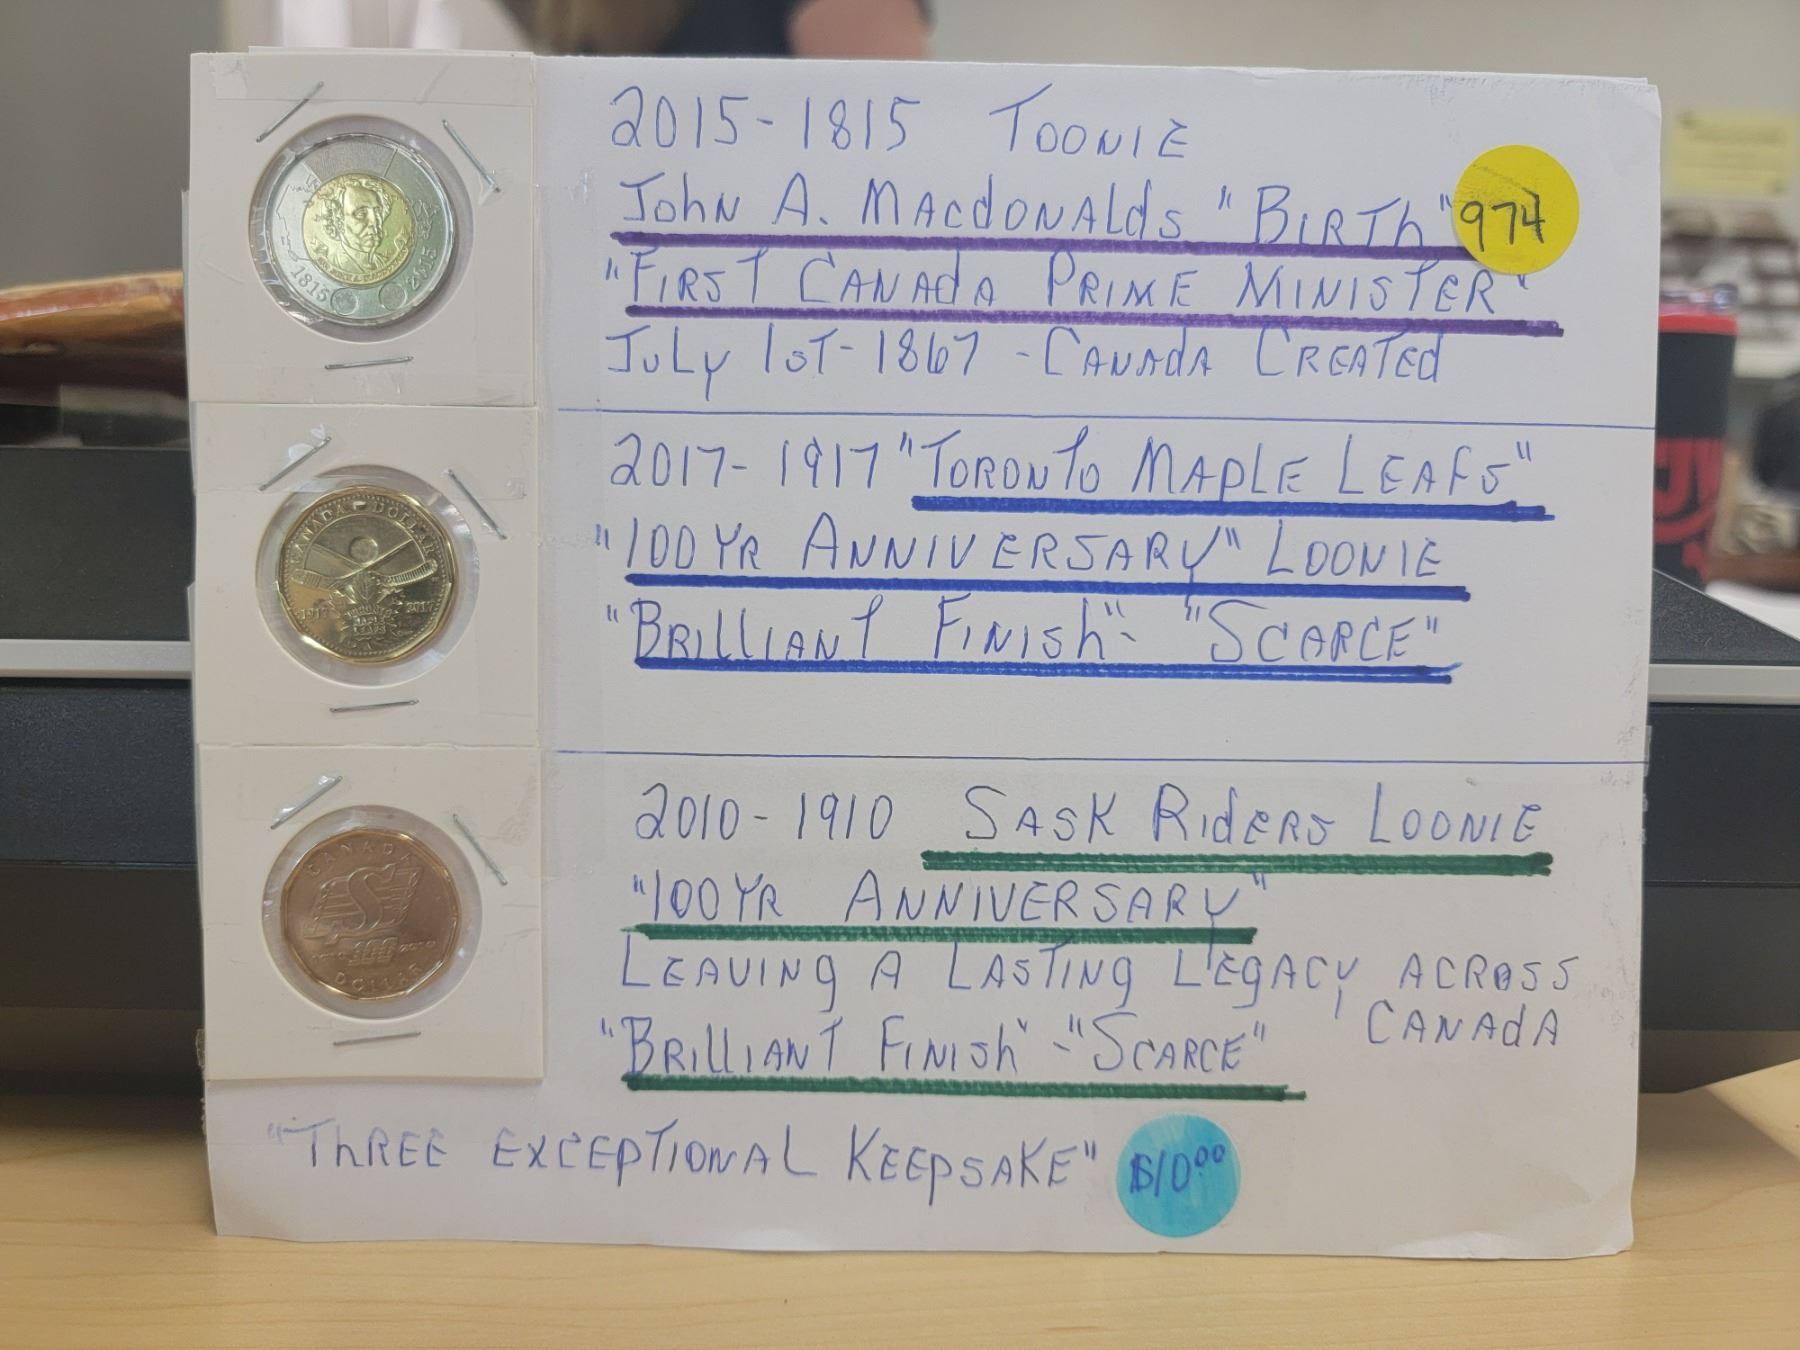 2015-1815 TOONIE
JOHN A. MACDONALDS "BIRTH"
974
"FIRST CANADA PRIME MINISTER"
JULY 1ST-1867 - CANADA CREATED
1815 2015
2017-1917 "TORONTO MAPLE LEAFS"
"100 YR ANNIVERSARY" LOONIE
"BRILLIANT FINISH" - "SCARCE"
CANADA DOLLAR
1917 2017
TORONTO
MAPLE
LEAFS
2010-1910 SASK RIDERS LOONIE
"100 YR ANNIVERSARY"
LEAVING A LASTING LEGACY ACROSS
CANADA
"BRILLIANT FINISH" - "SCARCE"
CANADA
S
100 2010
DOLLAR
"THREE EXCEPTIONAL KEEPSAKE"
$10.00